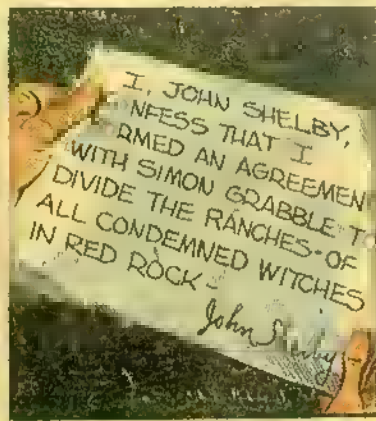 I, JOHN SHELBY,
NFESS THAT I
RMED AN AGREEMEN
WITH SIMON GRABBLE TO
DIVIDE THE RANCHES OF
ALL CONDEMNED WITCHES
IN RED ROCK -
John Shelby